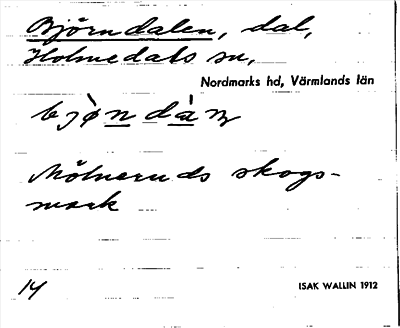 Björndalen, dal,
Holmedals sn,
Nordmarks hd, Värmlands län
Mölneruds skogs-
mark
14
ISAK WALLIN 1912